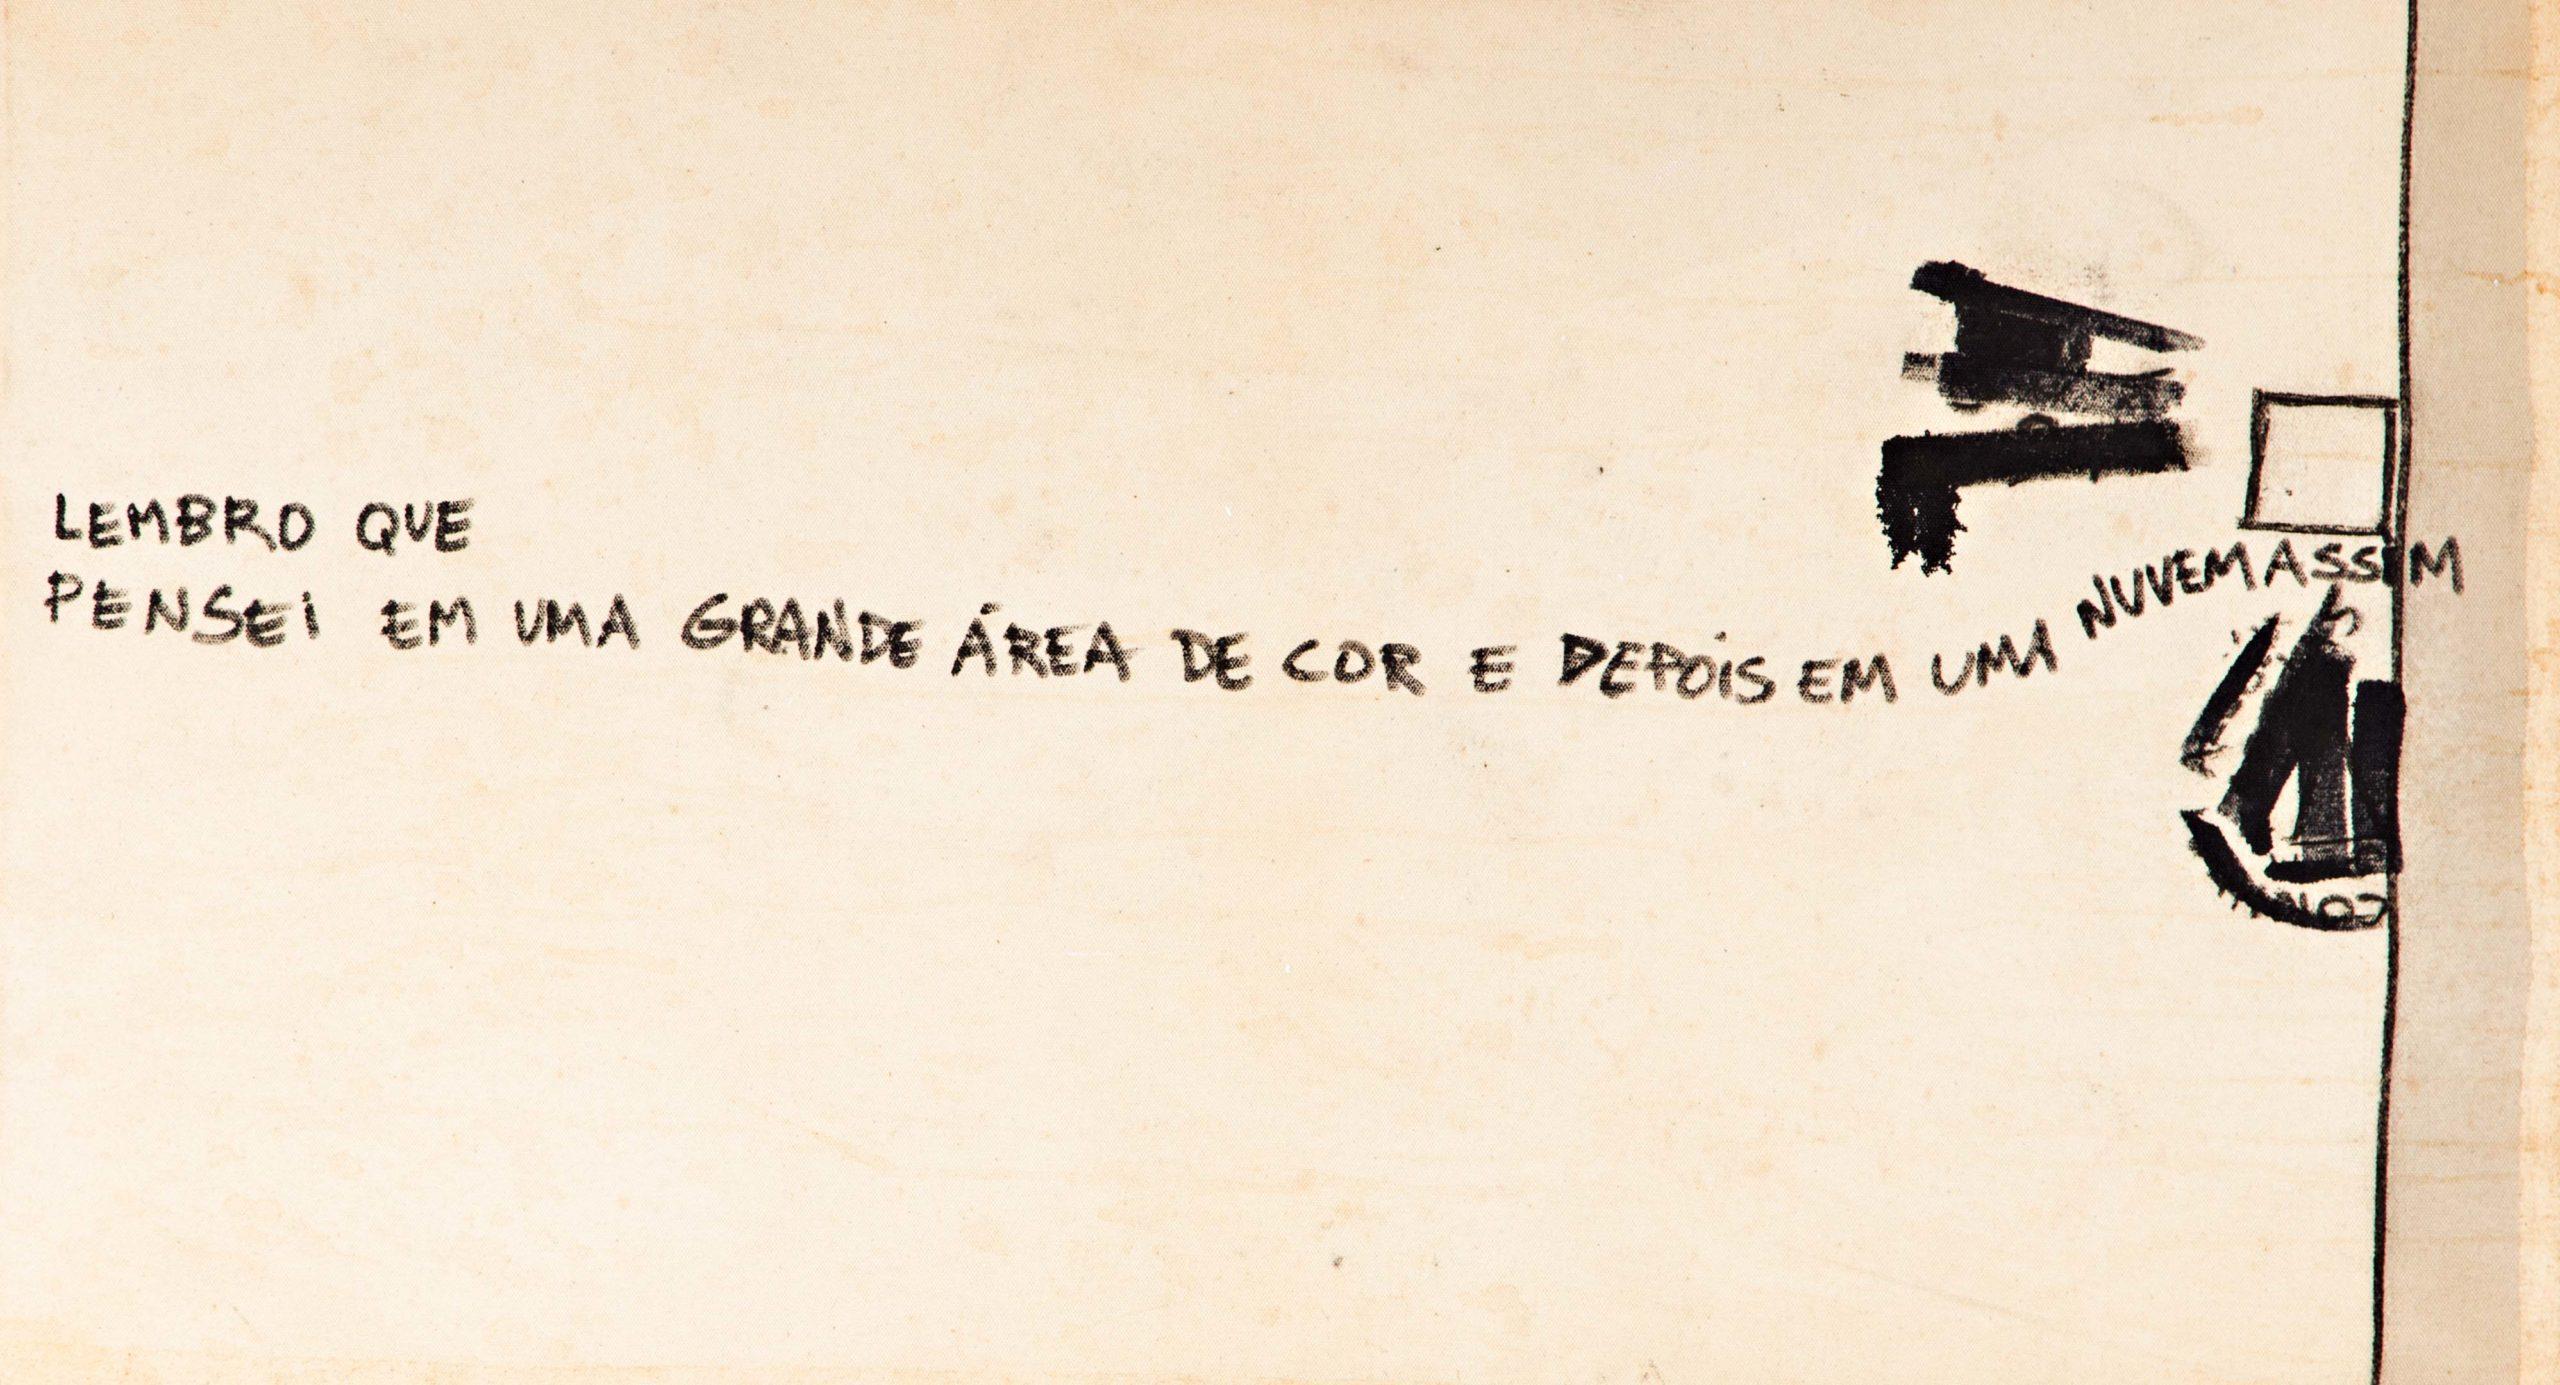 LEMBRO QUE
PENSEI EM UMA GRANDE ÁREA DE COR E DEPOIS EM UMA NUVEM ASSIM